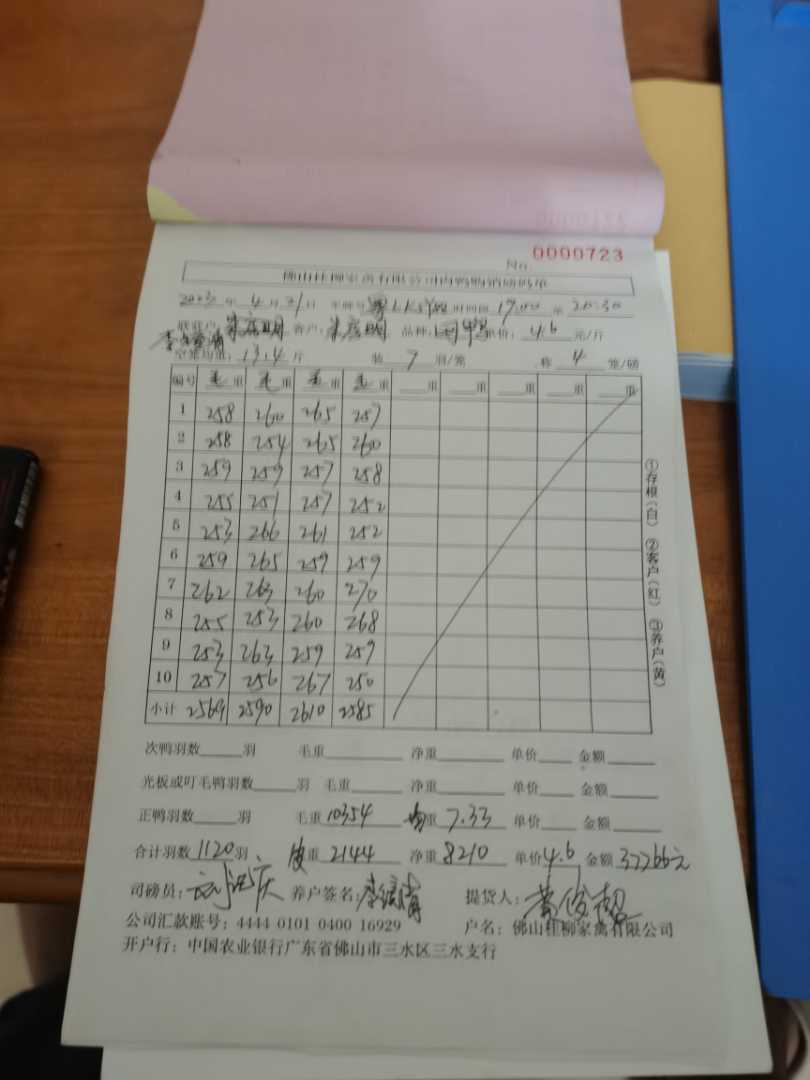 No 0000723
佛山桂柳家禽有限公司肉鸭购销磅码单
2023年 4月21日 车牌号 时间段 19:00 至 20:30
客户: 品种: 单价: 4.6 元/斤
空笼均重: 13.4 斤 装 7 羽/笼 称 4 笼/磅
编号 毛重 毛重 毛重 毛重 重 重 重 重 重
1 258 260 265 257
2 258 254 265 260
3 259 259 257 258
4 255 251 257 252
5 253 266 261 252
6 259 265 259 259
7 262 263 260 270
8 255 253 260 268
9 253 263 259 259
10 257 256 267 250
小计 2569 2590 2610 2585
①存根(白) ②客户(红) ③养户(黄)
次鸭羽数 羽 毛重 净重 单价 金额
光板或叮毛鸭羽数 羽 毛重 净重 单价 金额
正鸭羽数 羽 毛重 10354 均重 7.33 单价 金额
合计羽数 1120 羽 皮重 2144 净重 8210 单价 4.6 金额 37766元
司磅员: 养户签名: 提货人:
公司汇款账号: 4444 0101 0400 16929 户名: 佛山桂柳家禽有限公司
开户行: 中国农业银行广东省佛山市三水区三水支行